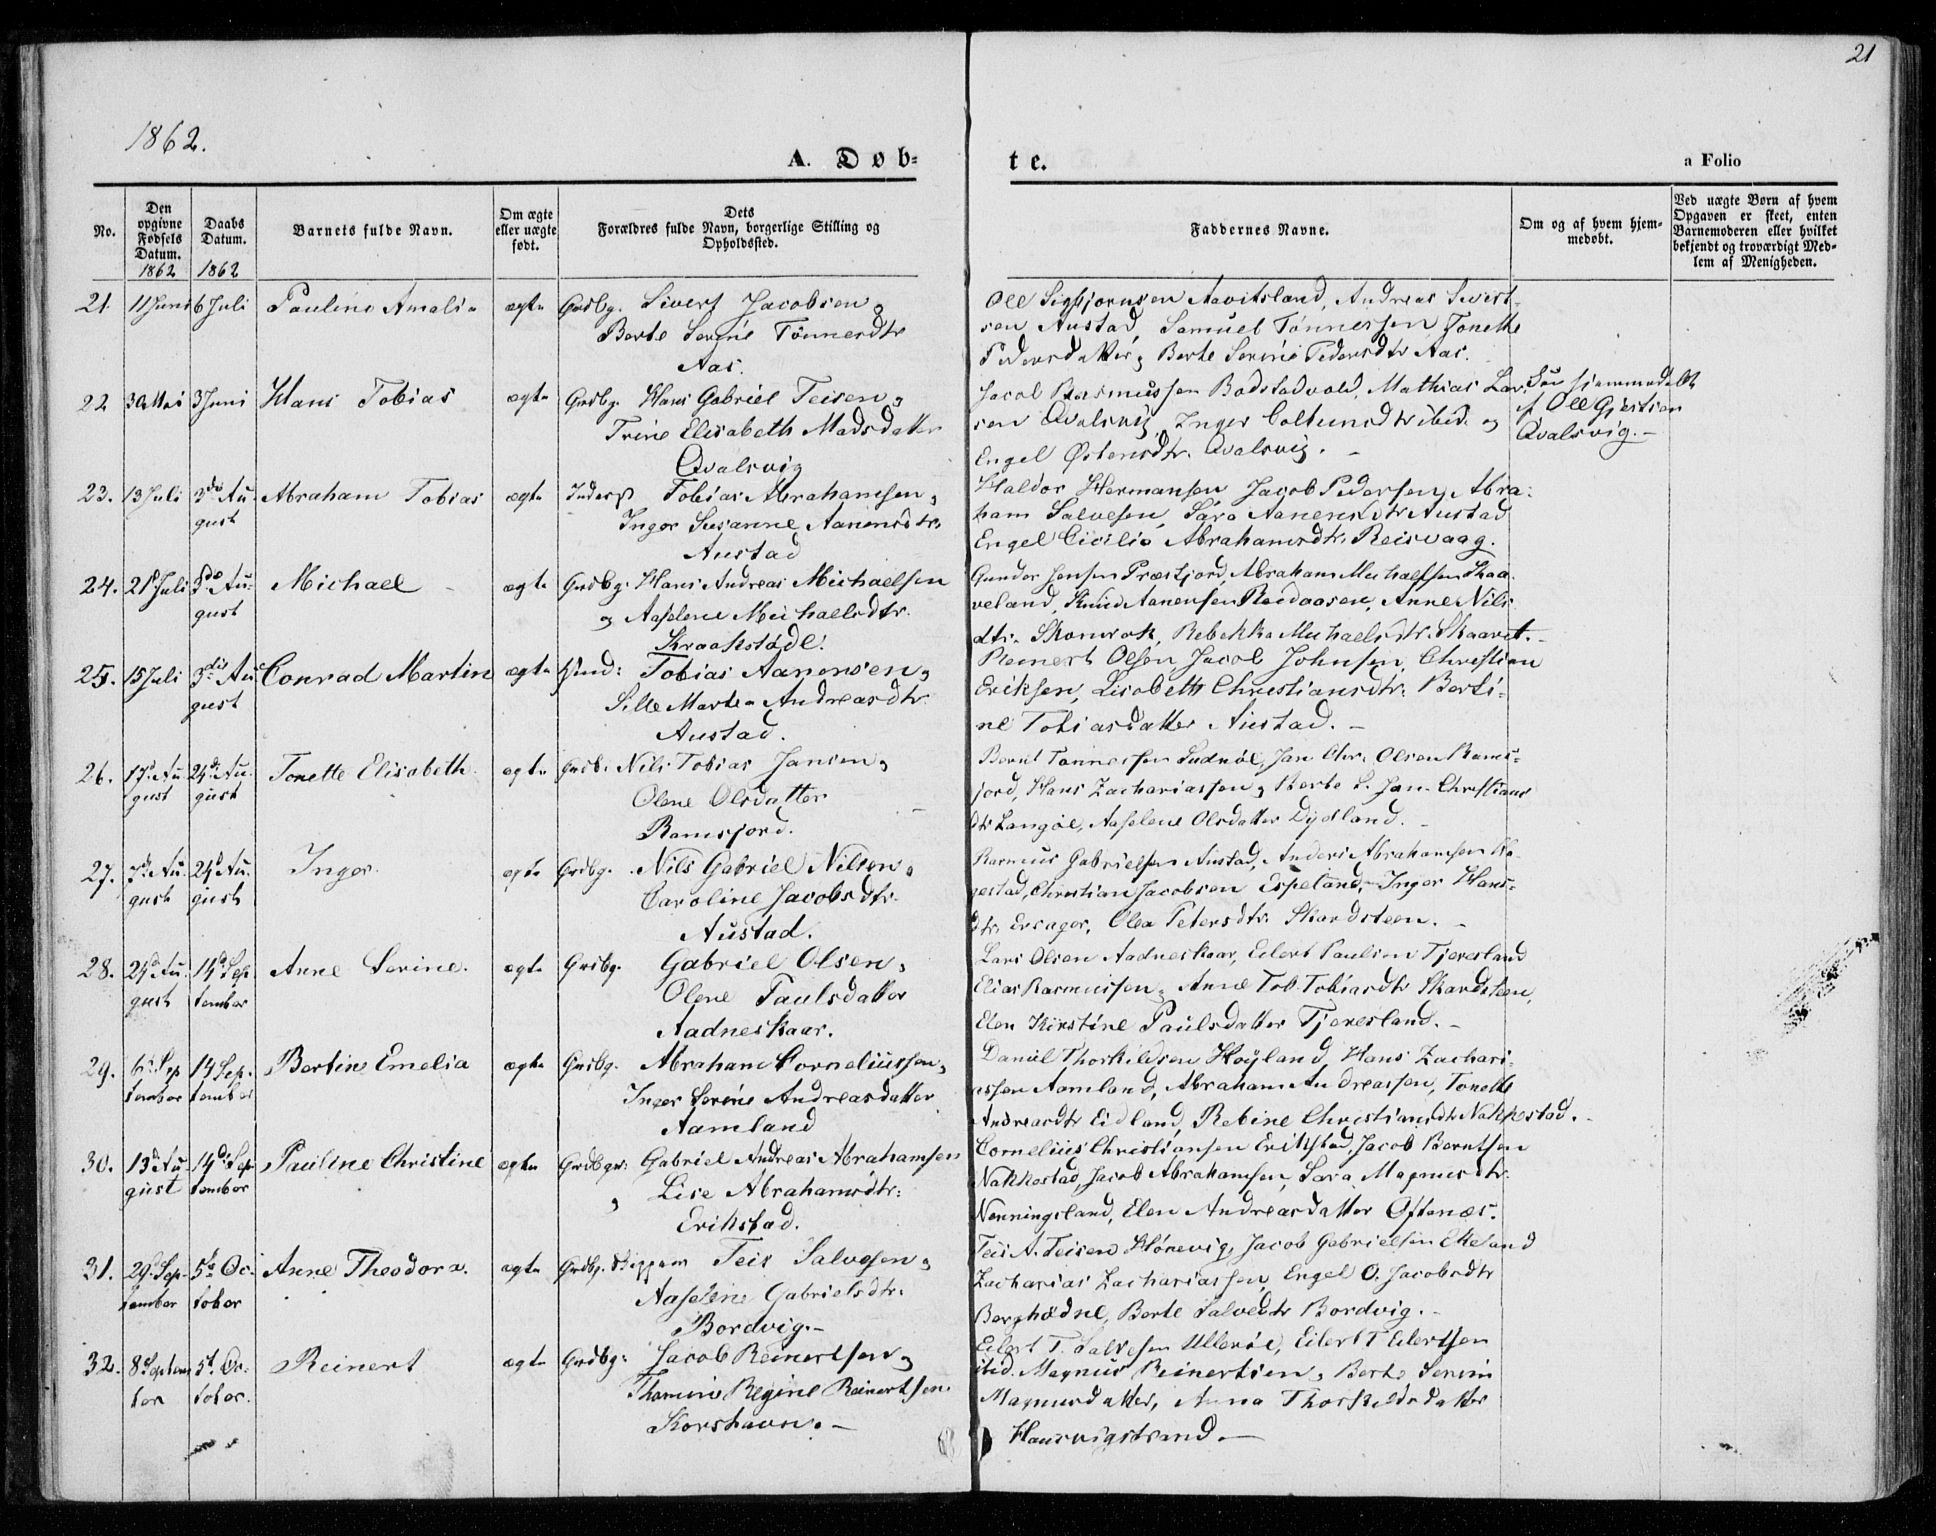 21
1862.
A. Døb=
te.
a Folio
No.
Den opgivne Fødsels Datum. 1862
Daabs Datum. 1862
Barnets fulde Navn.
Om ægte eller uægte født.
Dets Forældres fulde Navn, borgerlige Stilling og Opholdssted.
Faddernes Navne.
Om og af hvem hjemmedøbt.
Ved uægte Børn af hvem Opgaven er skeet, enten Barnemoderen eller hvilket bekjendt og troværdigt Medlem af Menigheden.
21 11 Juni 6 Juli Pauline Amalia ægte Grdbg. Sivert Jacobsen &
Berte Serine Tønnesdtr
Aas.
Ole Sigbjørnsen Aavitsland, Andreas Sivert-
sen Austad, Samuel Tønnessen, Tonette
Pedersdatter, Berte Serine Pedersdtr Aas.
22 30 Mai 3 Juni Hans Tobias ægte Grdbg. Hans Gabriel Teisen &
Trine Elisabeth Madsdatter
Qvalsvig
Jacob Rasmussen Bodstadvold, Mathias Lar-
sen Qvalsvig, Inger ibid. og
Engel Østensdtr. Qvalsvig. -
hjemmedøbt
f. Ole
Qvalsvig. -
23. 13 Juli 3de Au
gust
Abraham Tobias ægte Inderst Tobias Abrahamsen &
Inger Susanne Aanensdtr.
Austad
Haldor Hermansen Jacob Pedersen, Abra-
ham Salvesen, Sara Aanensdtr Austad
Engel Cicilie Abrahamsdtr. Reisvaag.
24. 21 Juli 3de Au-
gust
Michael - ægte Grdbg. Hans Andreas Michaelsen
og Aaselene Michaelsdtr.
Kraakstødl.
Gunder Jensen Præstjord, Abraham Michaelsen Skaa-
veland, Knud Aanensen Rødaasen, Anne Nils
dtr. , Rebekka Michaelsdtr. Skaavel. -
25. 15 Juli 3die Au
gust
Conrad Martin ægte Tobias Aanensen &
Sille Marte Andreasdtr.
Austad.
Reinert Olsen, Jacob Johnsen, Christian
Eriksen, Lisabeth Christiansdtr. Berti-
ne Tobiasdatter Austad. -
26. 17d Au
gust
24d Au.
gust
Tonette Elisabeth. ægte Grdb. Nils Tobias Jansen &
Olene Olsdatter
Ramsfjord.
Bernt Tønnessen Sudnøe, Jan Chr. Olsen Rams-
fjord, Hans Zachariassen & Berte S. Jan Christians
dtr Langøe, Aaselene Olsdatter Dydland. -
27. 7d Au.
gust
24d Au.
gust
Inger. ægte Grdbg. Nils Gabriel Nilsen &
Caroline Jacobsdtr.
Austad.
Rasmus Gabrielsen Austad, Anders Abrahamsen Ha-
gestad, Christian Jacobsen Espeland, Inger Hans-
dtr. , Olea Petersdtr. Skardsteen. -
28. 24d Au.
gust
14d Sep
tember
Anne Serine. ægte Grdbg. Gabriel Olsen &
Olene Paulsdatter
Aadneskaar.
Lars Olsen Aadneskaar, Eilert Paulsen Tjersland
Elias Rasmussen & Anne Tob. Tobiasdtr Skardsteen,
Elen Kirstine Paulsdatter Tjersland. -
29. 6d Sep
tember
14 Sep.
tember
Bertine Emelia ægte Grdbg. Abraham Corneliussen &
Inger Serine Andreasdatter
Aamland
Daniel Thorkildsen Høyland, Hans Zachari-
assen Aamland, Abraham Andreassen, Tonette
Andreasdtr Eidland, Rebine Christiansdtr Nakkestad. -
30. 13d Au
gust
14d Sep
tember
Pauline Christine ægte Grdbgr. Gabriel Andreas Abrahamsen
& Lise Abrahamsdtr.
Erikstad.
Cornelius Christiansen Erikstad, Jacob Berntsen
Nakkestad, Jacob Abrahamsen, Sara Magnusdtr.
Nenningsland, Elen Andreasdatter Oftenæs.
31. 29 Sep-
tember
5te Oc-
tober
Anne Theodora. ægte Grdbg. Skipper Teis Salvesen &
Aaselene Gabrielsdtr.
Bordvig. -
Teis A. Teisen Hønevig, Jacob Gabrielsen Ekeland
Zacharias Zachariassen, Engel O. Jacobsdtr
Berghødne, Berte Salvesdtr Bordvig. -
32. 8 Septem
ber
5t. Oc-
tober.
Reinert ægte Grdbg. Jacob Reinertsen &
Thomine Regine Reinertsen.
Korshavn. -
Eilert T. Salvesen Ullerøe, Eilert T Eilertsen
ibid. Magnus Reinertsen & Berte Serine
Magnusdatter, Anna Thorkildsdatter
Hansvigstrand. -